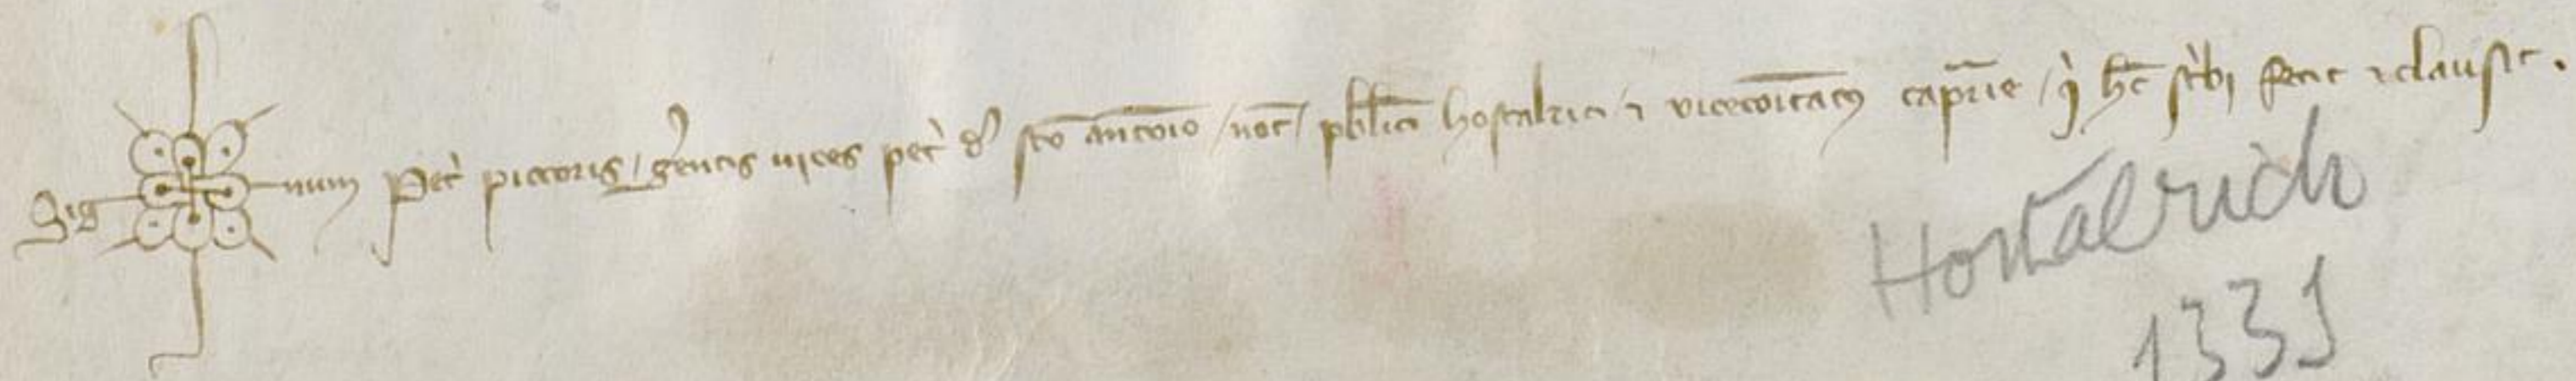 Signum Petri pictoris, gerentis vices petri de sco antonio, not publici hostalrici et vicecomitatus caprarie, qui hec scribi fecit et clausit.
Hostalrich
1335